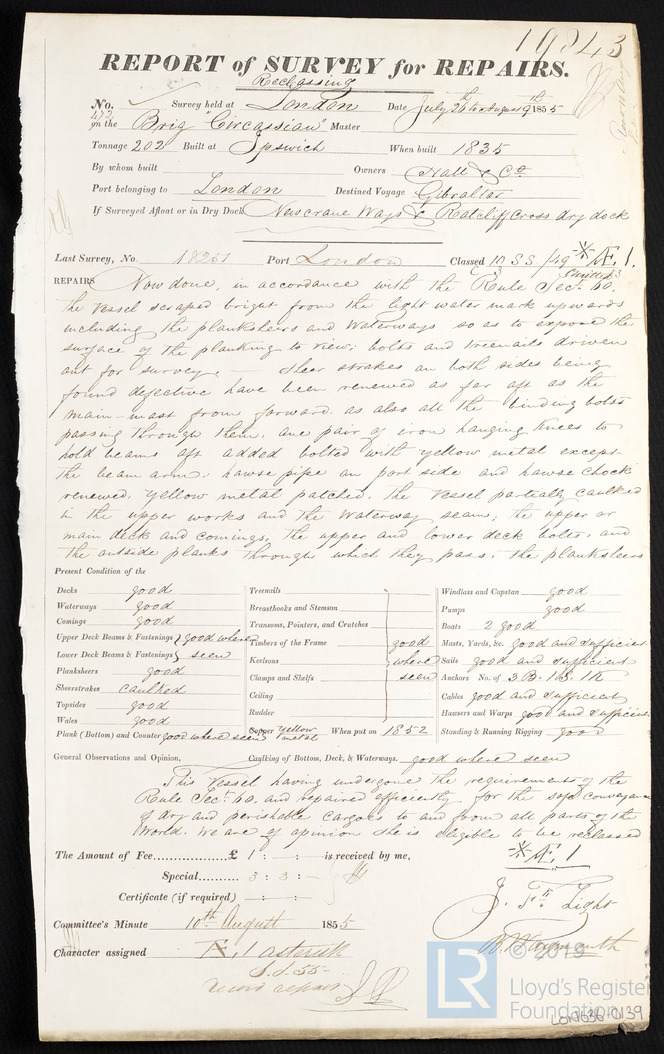 19843
REPORT of SURVEY for REPAIRS.
Reclassing
No. 472 Survey held at London Date July 26th to August 9th 1855
on the Brig "Circassian" Master
Tonnage 202 Built at Ipswich When built 1835
By whom built Owners Hall & Co
Port belonging to London Destined Voyage Gibraltar
If Surveyed Afloat or in Dry Dock Newcrane Ways & Ratcliff Cross dry dock
Last Survey, No. 18251 Port London Classed 10 SS /49 Æ, 1.
REPAIRS Now done, in accordance with the Rule Sect. 60.
the Vessel scraped bright from the light water mark upwards
including the planksheers and Waterways so as to expose the
surface of the planking to view; bolts and treenails driven
out for survey. — Sheer strakes on both sides being
found defective have been renewed as far aft as the
main-mast from forward. as also all the binding bolts
passing through them. one pair of iron hanging knees to
hold beams aft added bolted with yellow metal except
the beam arm. hawse pipe on port side and hawse chock
renewed. yellow metal patched. the Vessel partially caulked
in the upper works and the Waterway seams, the upper or
main deck and comings, the upper and lower deck bolts. and
the outside planks through which they pass. the planksheers
Present Condition of the
Decks good
Waterways good
Comings good
Upper Deck Beams & Fastenings } good where
Lower Deck Beams & Fastenings } seen
Planksheers good
Sheerstrakes caulked
Topsides good
Wales good
Plank (Bottom) and Counter good where seen
Treenails
Breasthooks and Stemson
Transoms, Pointers, and Crutches
Timbers of the Frame good
Keelsons where
Clamps and Shelfs seen
Ceiling
Rudder
Copper Yellow metal When put on 1852
Windlass and Capstan good
Pumps good
Boats 2 good
Masts, Yards, &c. good and sufficient
Sails good and sufficient
Anchors No. of 3 B. 1 S. 1 K
Cables good and sufficient
Hawsers and Warps good and sufficient
Standing & Running Rigging good
General Observations and Opinion, Caulking of Bottom, Deck, & Waterways. good where seen
This Vessel having undergone the requirements of the
Rule Sect. 60. and repaired efficiently for the safe conveyance
of dry and perishable cargoes to and from all parts of the
World. We are of opinion she is eligible to be reclassed
Æ, 1
The Amount of Fee £ 1 : – : – is received by me,
Special 3 : 3 : –
Certificate (if required)
J. Light
Committee's Minute 10th August 1855
Character assigned Æ, 1 asterisk
S.S. 55-
record repairs
LR
© 2019
Lloyd's Register
Foundation
LON636-0139